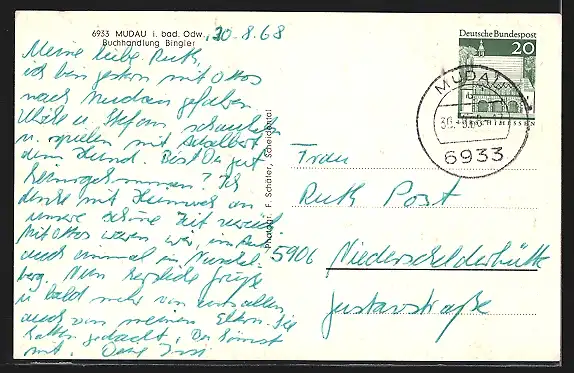 6933 MUDAU i. bad. Odw.
Buchhandlung Bingler
30-8.68
Meine liebe Ruth,
ich bin gestern mit Ottos
nach Mudau gefahren
u. spielen mit
dem Hund. Bist Du gut
heimgekommen? Ich
denke mit Heimweh an
unsere schöne Zeit zurück.
Mit Ottos waren wir
auch einmal in
berg. Nun herzliche Grüße
u. bald mehr von uns allen
auch von meinen Eltern. Sie
hatten gedacht, Du kämst
mit. Deine
Photogr. F. Schäfer, Scheidental
Deutsche Bundespost
20
LORSCH/HESSEN
MUDAU
6933
Frau
Ruth Post
5906 Niederschelderhütte
Gustavstraße